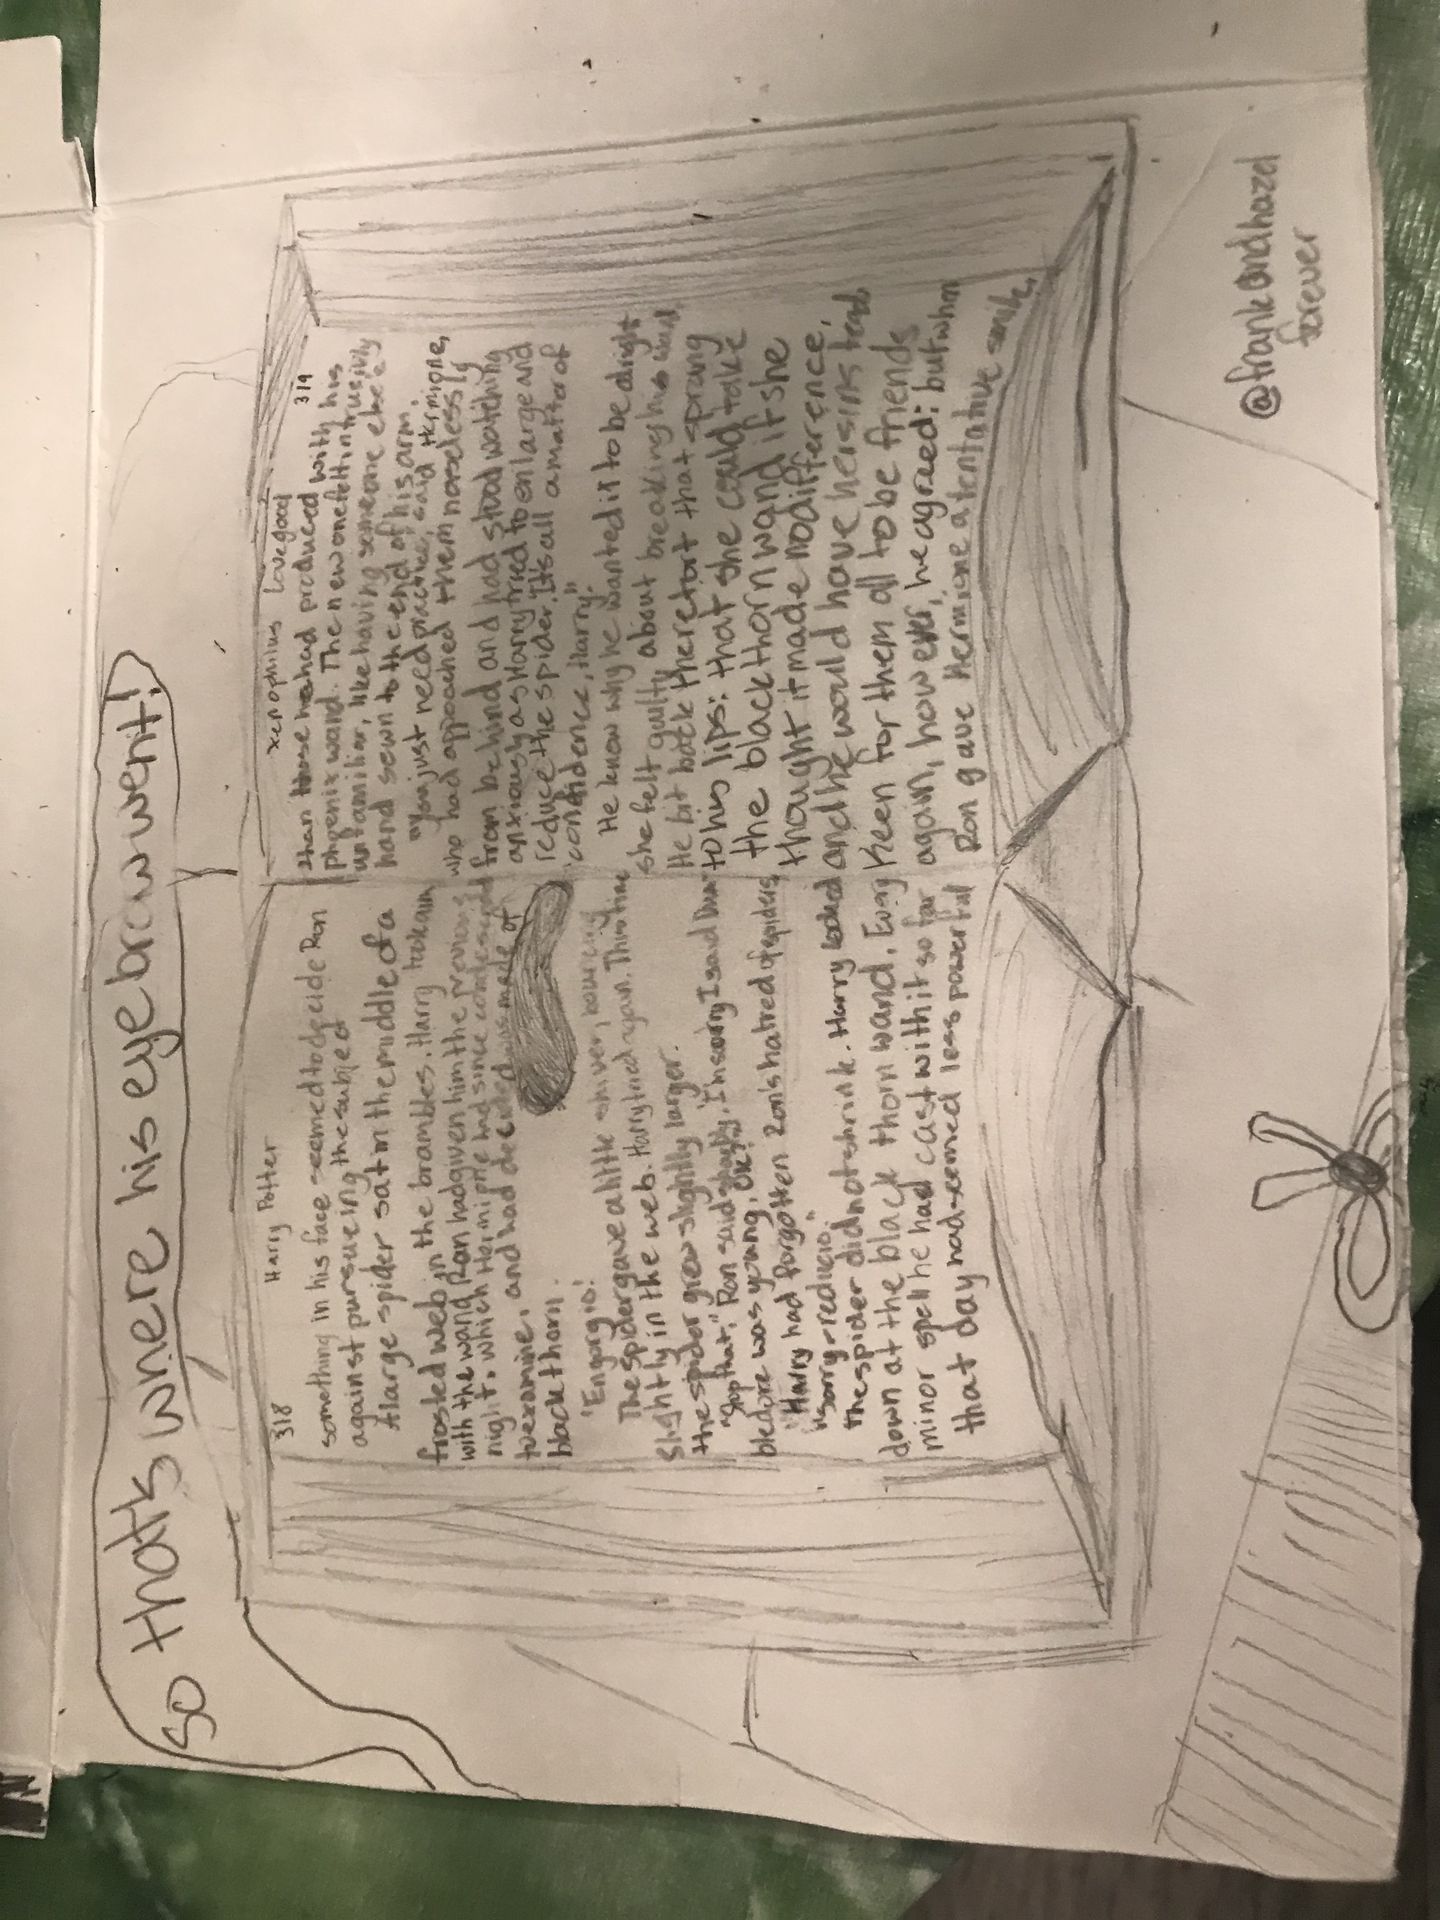 so that's where his eyebrow went!
318
Harry Potter
something in his face seemed to decide Ron
against pursueing the subject
A large spider sat in the middle of a
frosted web in the brambles. Harry took aim
with the wand Ron had given him the Previous
night, which Hermione had since condescended
to examine, and had decided was made of
blackthorn.
'Engorgio!
The spider gave a little shiver, bouncing
slightly in the web. Harry tried again. This time
the spider grew slightly larger.
"Stop that," Ron said sharply, 'I'm sorry I said Dum-
bledore was young, OK?
"Harry had forgotten Ron's hatred of spiders
"sorry - reducio."
The spider did not shrink. Harry looked
down at the black thorn wand. Every
minor spell he had cast with it so far
that day had seemed less powerful
xenophilius Lovegood
319
than those he had produced with his
phoenix wand. The new one felt intrusively
unfamiliar, like having someone else's
hand sewn to the end of his arm.
"you just need practice, said Hermione,
who had approached them noiselessly
from behind and had stood watching
anxiously as Harry tried to enlarge and
reduce the spider. It's all a matter of
confidence, Harry."
He know why he wanted it to be alright
she felt guilty about breaking his wand.
He bit back the retort that sprang
to his lips: that she could take
the blackthorn wand if she
thought it made no difference,
and he would have hers instead.
Keen for them all to be friends
again, however, he agreed: but when
Ron gave Hermione a tentative smile,
@frankandhazel
forever